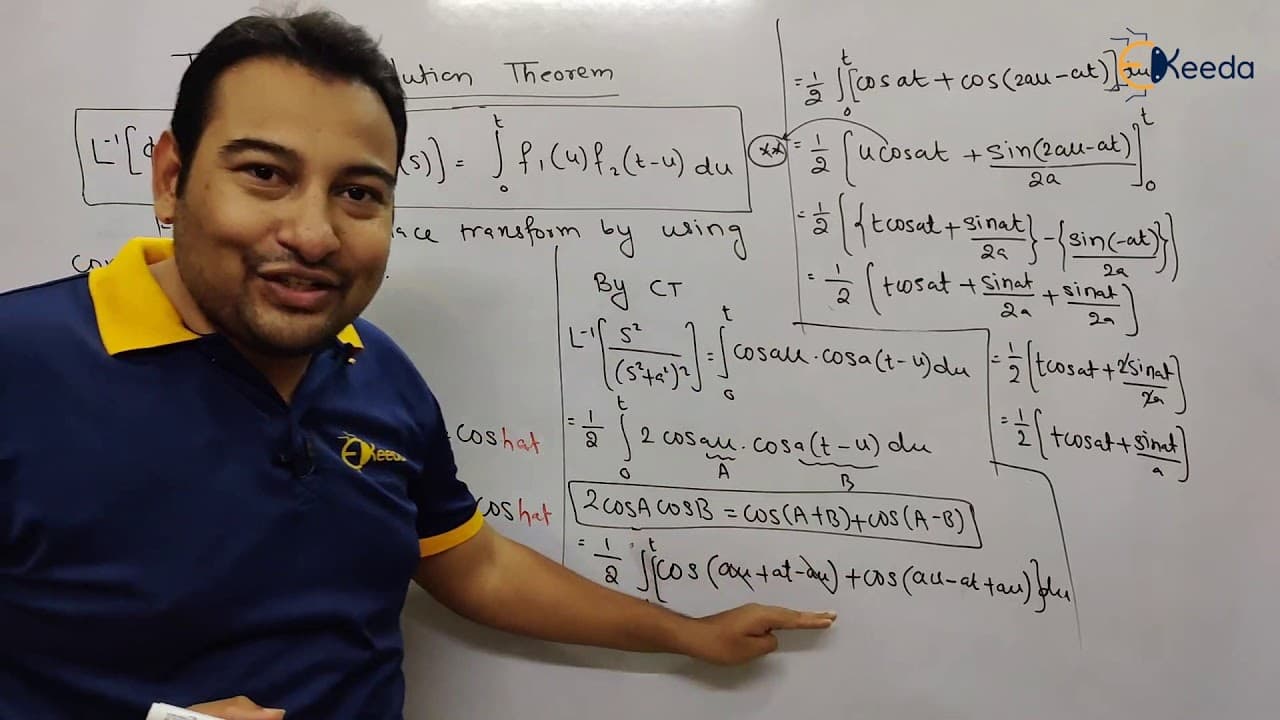 lution Theorem
L⁻¹[ϕ (s)] = ∫₀ᵗ f₁(u) f₂(t-u) du
ace transform by using
coshat
coshat
By CT
L⁻¹[s²/(s²+a²)²] = ∫₀ᵗ cosau · cosa(t-u) du
= 1/2 ∫₀ᵗ 2 cosau · cosa(t-u) du
A B
2cosAcosB = cos(A+B)+cos(A-B)
= 1/2 ∫ᵗ [cos(au+at-au) + cos(au-at+au)] du
= 1/2 ∫₀ᵗ [cosat + cos(2au-at)] du
** = 1/2 [ucosat + sin(2au-at)/2a]₀ᵗ
= 1/2 [{tcosat + sinat/2a} - {sin(-at)/2a}]
= 1/2 [tcosat + sinat/2a + sinat/2a]
= 1/2 [tcosat + 2sinat/2a]
= 1/2 [tcosat + sinat/a]
EKeeda
EKeeda